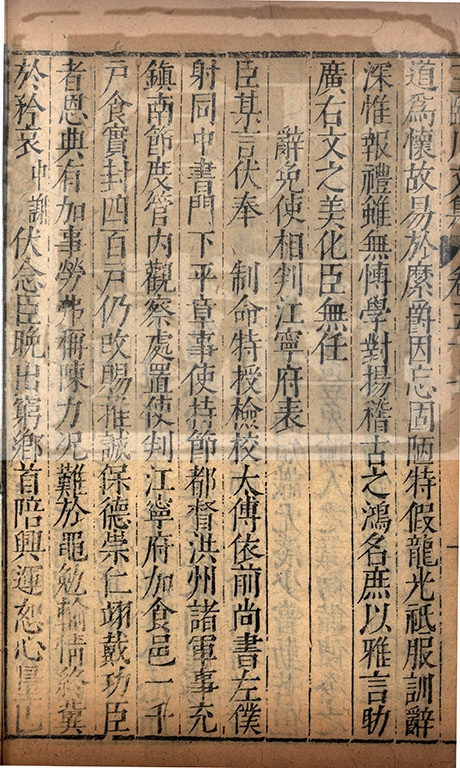 道爲懷故易於縻爵因忘固陋特假龍光祇服訓辭
深惟報禮雖無愽學對揚稽古之鴻名庶以雅言助
廣右文之美化臣無任
辭免使相判江寧府表
臣某言伏奉 制命特授檢校太傅依前尚書左僕
射同中書門下平章事使持節都督洪州諸軍事充
鎮南節度管内觀察處置使判江寧府加食邑一千
戸食實封四百戸仍改賜推誠保德崇仁翊戴功臣
者恩典有加事勞弗稱陳力况難於黽勉輸情終冀
於矜哀中謝伏念臣晚出窮鄉首陪興運恕心量己